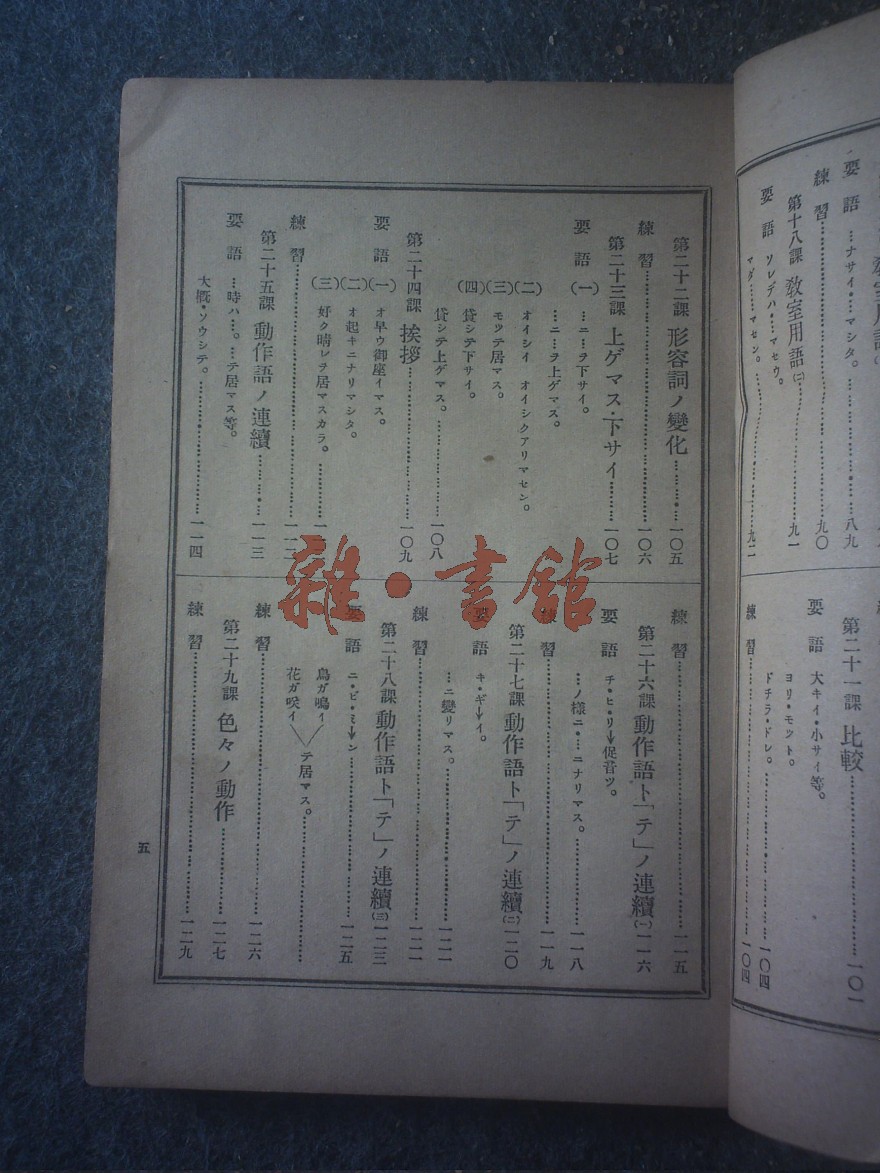 要語 …ナサイ・…マシタ。 八九
練習 九〇
第十八課 敎室用語(二) 九一
要語 ソレデハ・…マセウ。
マダ……マセン。 九二
第二十一課 比較 一〇一
要語 大キイ・小サイ等。
ヨリ・モット。
ドチラ・ドレ。 一〇四
練習 一〇四
第二十二課 形容詞ノ變化 一〇五
練習 一〇六
第二十三課 上ゲマス・下サイ 一〇七
要語 (一) …ニ…ヲ下サイ。
…ニ…ヲ上ゲマス。
(二) オイシイ オイシクアリマセン。
(三) モッテ居マス。
(四) 貸シテ下サイ。
貸シテ上ゲマス。 一〇八
第二十四課 挨拶 一〇九
要語 (一) オ早ウ御座イマス。
(二) オ起キニナリマシタ。
(三) 好ク晴レヲ居マスカラ。
練習
第二十五課 動作語ノ連續 一一三
要語 …時ハ…。…テ居マス等。
大槪・ソウシテ。 一一四
練習 一一五
第二十六課 動作語ト「テ」ノ連續(一) 一一六
要語 チ・ヒ・リ→促音ツ。
…ノ樣ニ・…ニナリマス。 一一八
練習 一一九
第二十七課 動作語ト「テ」ノ連續(二) 一二〇
要語 キ・ギ→イ。
…ニ變リマス。 一二一
練習
第二十八課 動作語ト「テ」ノ連續(三) 一二三
要語 ニ・ビ・ミ→ン 一二五
鳥ガ鳴イ
花ガ咲イ
テ居マス。
練習 一二六
第二十九課 色々ノ動作 一二七
練習 一二九
五
雜·書館